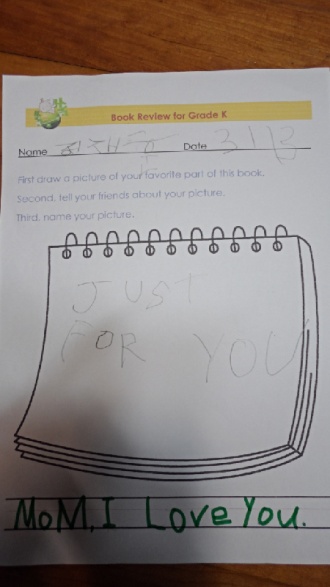 Book Review for Grade K
Name Date 3113
First draw a picture of your favorite part of this book.
Second, tell your friends about your picture.
Third, name your picture.
JUST
FOR YOU
MoM, I Love You.